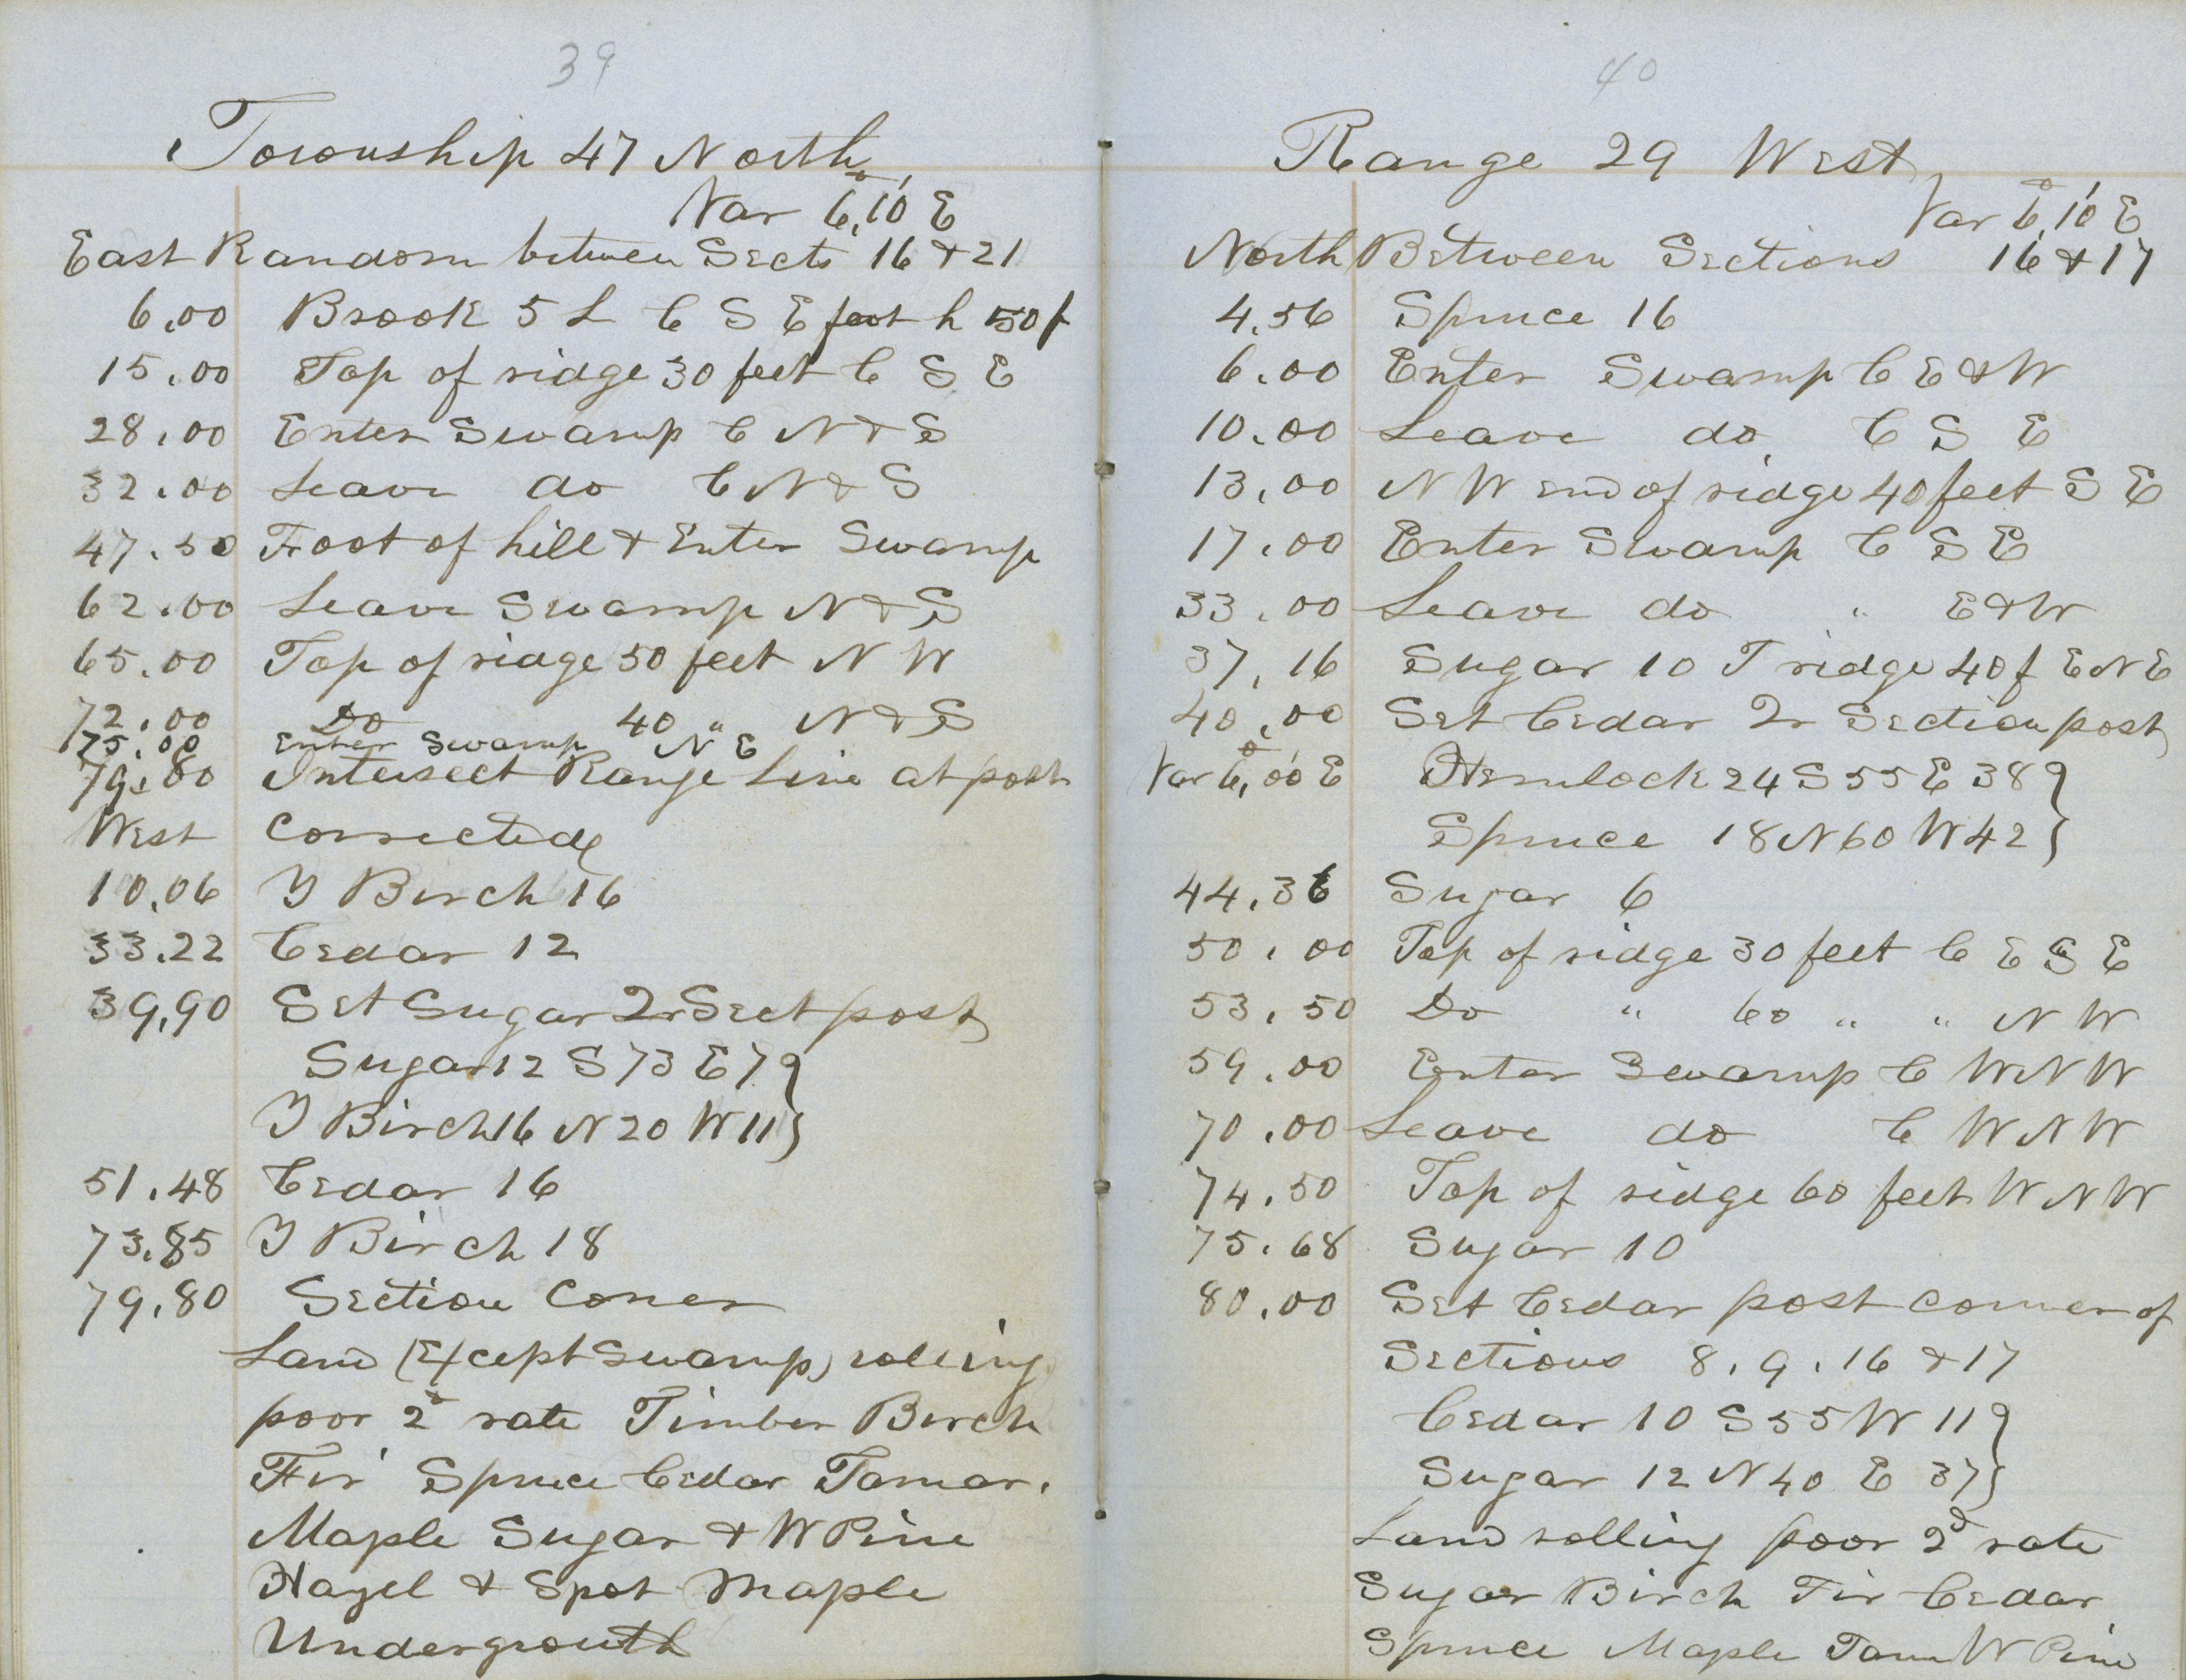 39
Township 47 North
Var 6°,10' E
East Random between Sects 16 & 21
6,00 Brook 5 L C S E foot h 50 f
15.00 Top of ridge 30 feet C S E
28.00 Enter Swamp C N & S
32.00 Leave do C N & S
47.50 Foot of hill & Enter Swamp
62.00 Leave Swamp N & S
65.00 Top of ridge 50 feet N W
72.00 Do 40 " N & S
75.00 Enter Swamp N E
79.80 Intersect Range Line at post
West Corrected
10.06 Y Birch 16
33.22 Cedar 12
39,90 Set Sugar Qr Sect post
Sugar 12 S 73 E 79 }
Y Birch 16 N 20 W 11 }
51.48 Cedar 16
73.85 Y Birch 18
79.80 Section Corner
Land (Except Swamp) rolling
poor 2d rate Timber Birch
Fir Spruce Cedar Tamar.
Maple Sugar & W Pine
Hazel & Spot Maple
Undergrouth
40
Range 29 West
Var 6°,10' E
North Between Sections 16 & 17
4.56 Spruce 16
6.00 Enter Swamp C E & W
10.00 Leave do C S E
13,00 N W end of ridge 40 feet S E
17.00 Enter Swamp C S E
33.00 Leave do " E & W
37,16 Sugar 10 T ridge 40 f E N E
40,00 Set Cedar Qr Section post
Var 6°,00' E Hemlock 24 S 55 E 38 }
Spruce 18 N 60 W 42 }
44.36 Sugar 6
50.00 Top of ridge 30 feet C E S E
53.50 Do " 60 " " N W
59.00 Enter Swamp C W N W
70.00 Leave do C W N W
74.50 Top of ridge 60 feet W N W
75.68 Sugar 10
80.00 Set Cedar post corner of
Sections 8. 9. 16 & 17
Cedar 10 S 55 W 11 }
Sugar 12 N 40 E 37 }
Land rolling poor 2d rate
Sugar Birch Fir Cedar
Spruce Maple Tam W Pine